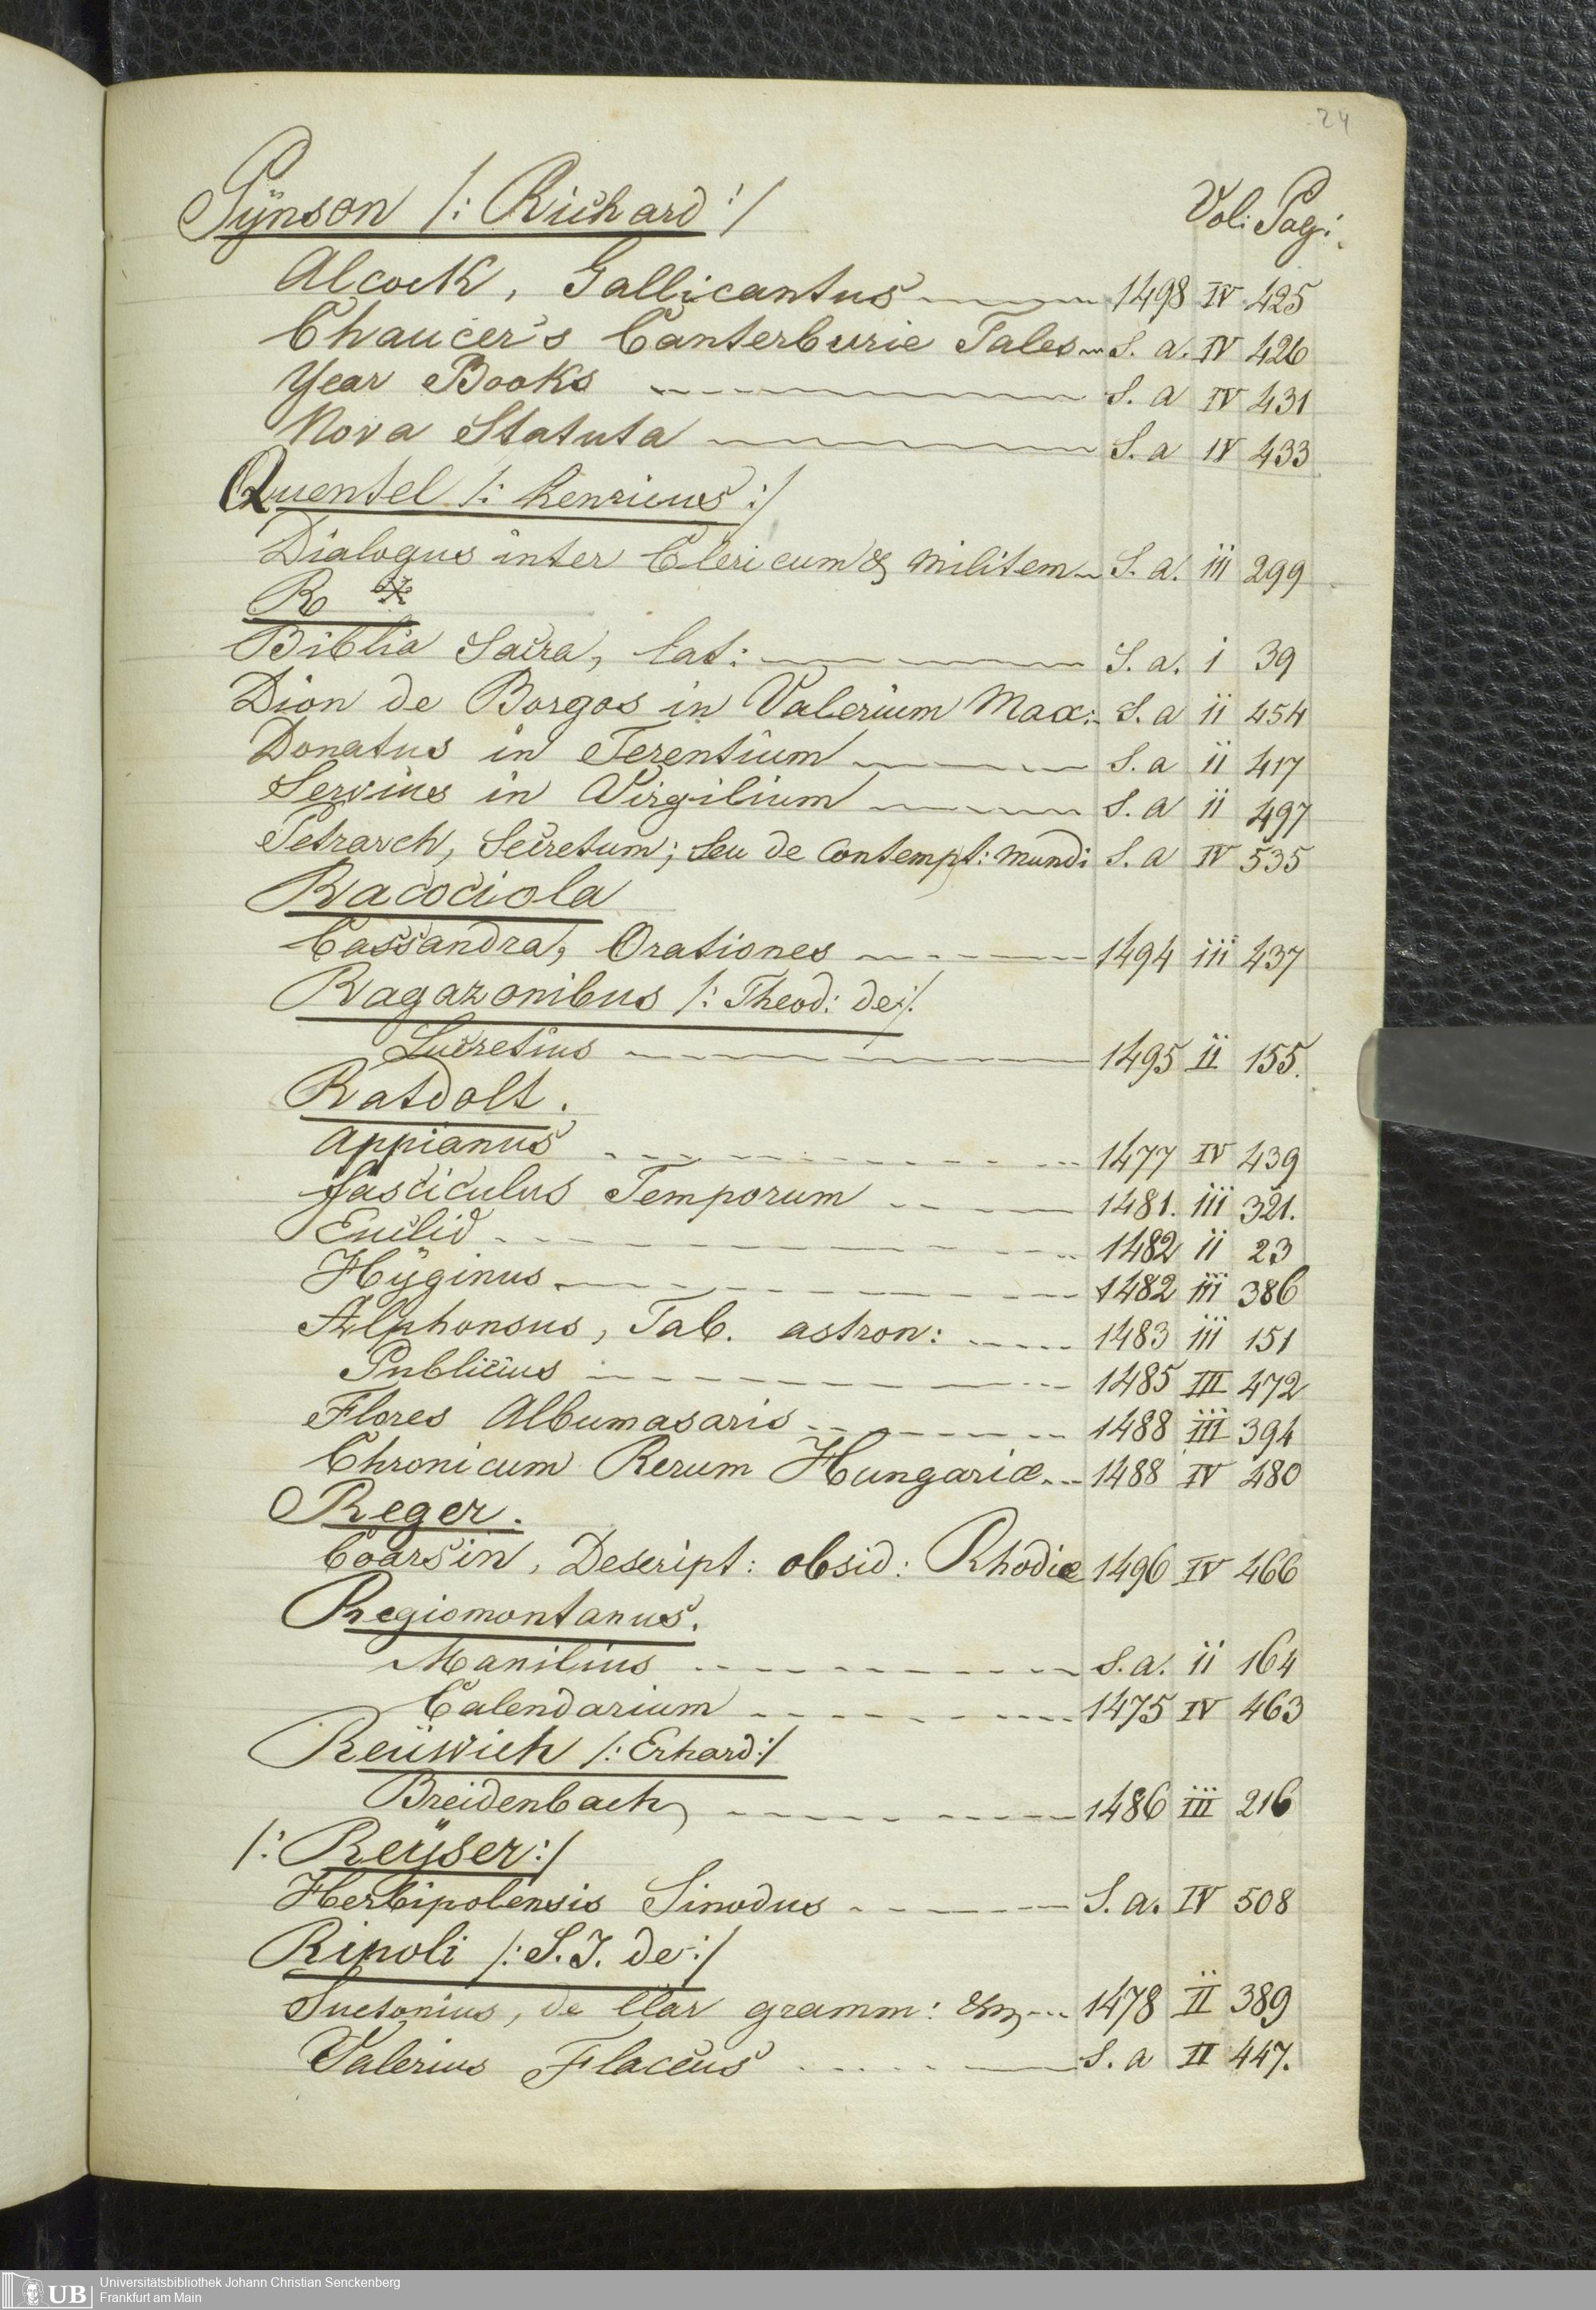 24
Pÿnson /: Richard :/ Vol: Pag:
Alcock, Gallicantus 1498 IV 425
Chaucer's Canterburie Tales S. a. IV 426
Year Books S. a IV 431
Nova Statuta S. a IV 433
Quentel /: Henricus :/
Dialogus inter Clericum & Militem S. a. iii 299
R
Biblia Sacra, lat: S. a. i 39
Dion de Borgos in Valerium Max: S. a ii 454
Donatus in Terentium S. a ii 417
Servius in Virgilium S. a ii 497
Petrarch, Secretum; Seu de Contempt: Mundi S. a IV 535
Racociola
Cassandra, Orationes 1494 iii 437
Ragazonibus /: Theod: de :/.
Lucretius 1495 ii 155.
Ratdolt.
Appianus 1477 IV 439
fasciculus Temporum 1481. iii 321.
Euclid 1482 ii 23
Hÿginus 1482 iii 386
Alphonsus, Tab. astron: 1483 iii 151
Publicius 1485 III 472
Flores Albumasaris 1488 III 394
Chronicum Rerum Hungariæ 1488 IV 480
Reger.
Coarsin, Descript: obsid: Rhodiæ 1496 IV 466
Regiomontanus.
Manilius S. a. ii 164
Calendarium 1475 IV 463
Reüwich /: Erhard :/
Breidenbach, 1486 III 216
/: Reÿser :/
Herbipolensis Sinodus S. a. IV 508
Ripoli /: S. J. de :/
Suetonius, de Clar gramm: 1478 II 389
Valerius Flaccus S. a II 447.
UB
Universitätsbibliothek Johann Christian Senckenberg
Frankfurt am Main